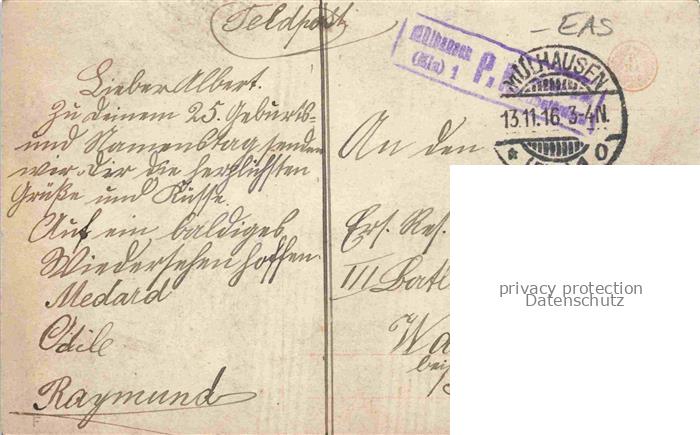 Feldpost
EAS
Mülhausen
(Els) 1 P.
MÜLHAUSEN
13.11.16. 3-4N.
Lieber Albert.
Zu deinem 25. Geburts=
und Namenstag senden
wir dir die herzlichsten
Grüße und Küsse.
Auf ein baldiges
Wiedersehen hoffen.
Medard
Odile
Raymund
An den
Ers. Res.
III Batl
Wa
bei
privacy protection
Datenschutz